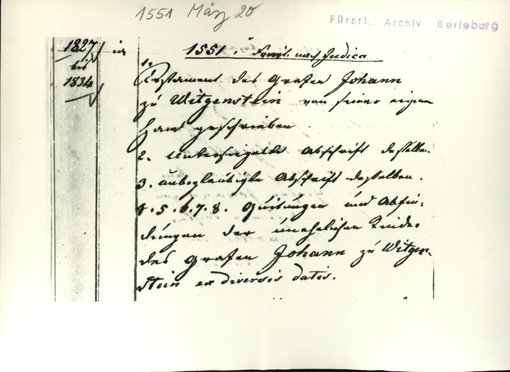 1551 März 20
Fürstl. Archiv Berleburg
1827 in 1551. Freyt. nach Judica
bis
1834
1.
Testament des Grafen Johann
zu Witgenstein von seiner eigen
Hand geschrieben
2. untersiegelte Abschrift desselben.
3. unbeglaubigte Abschrift desselben.
4. 5. 6. 7. 8. Quitungen und Abfin-
dungen der unehelichen Kinder
des Grafen Johann zu Witgen-
stein ex diversis datis.